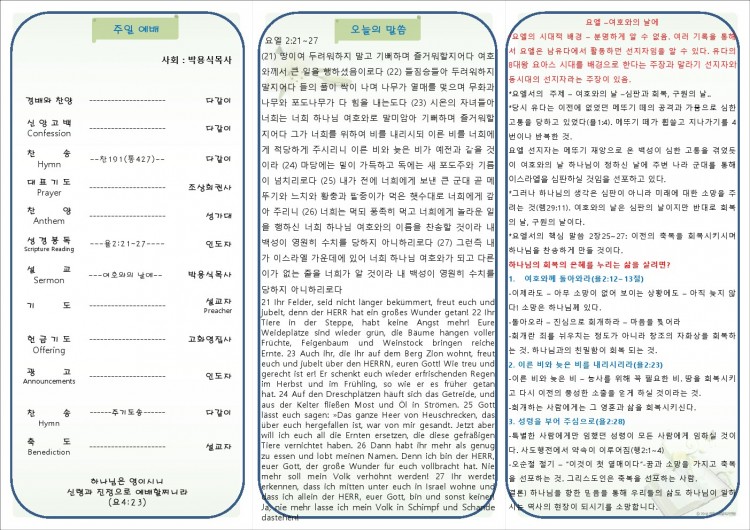 주일 예배
사회 : 박용식목사
경배와 찬양 ---------------- 다같이
신 앙 고 백 ---------------- 다같이
Confession
찬 송 --찬191(통427)-- 다같이
Hymn
대 표 기 도 ---------------- 조상희권사
Prayer
찬 양 ---------------- 성가대
Anthem
성 경 봉 독 ---욜2:21-27---- 인도자
Scripture Reading
설 교 ---여호와의 날에-- 박용식목사
Sermon
기 도 ---------------- 설교자
Preacher
헌 금 기 도 ---------------- 고화영집사
Offering
광 고 ---------------- 인도자
Announcements
찬 송 -----주기도송----- 다같이
Hymn
축 도 ---------------- 설교자
Benediction
하나님은 영이시니
신령과 진정으로 예배할찌니라
(요4:23)
오늘의 말씀
요엘 2:21~27
(21) 땅이여 두려워하지 말고 기뻐하며 즐거워할지어다 여호
와께서 큰 일을 행하셨음이로다 (22) 들짐승들아 두려워하지
말지어다 들의 풀이 싹이 나며 나무가 열매를 맺으며 무화과
나무와 포도나무가 다 힘을 내는도다 (23) 시온의 자녀들아
너희는 너희 하나님 여호와로 말미암아 기뻐하며 즐거워할
지어다 그가 너희를 위하여 비를 내리시되 이른 비를 너희에
게 적당하게 주시리니 이른 비와 늦은 비가 예전과 같을 것
이라 (24) 마당에는 밀이 가득하고 독에는 새 포도주와 기름
이 넘치리로다 (25) 내가 전에 너희에게 보낸 큰 군대 곧 메
뚜기와 느치와 황충과 팥중이가 먹은 햇수대로 너희에게 갚
아 주리니 (26) 너희는 먹되 풍족히 먹고 너희에게 놀라운 일
을 행하신 너희 하나님 여호와의 이름을 찬송할 것이라 내
백성이 영원히 수치를 당하지 아니하리로다 (27) 그런즉 내
가 이스라엘 가운데에 있어 너희 하나님 여호와가 되고 다른
이가 없는 줄을 너희가 알 것이라 내 백성이 영원히 수치를
당하지 아니하리로다
21 Ihr Felder, seid nicht länger bekümmert, freut euch und
jubelt, denn der HERR hat ein großes Wunder getan! 22 Ihr
Tiere in der Steppe, habt keine Angst mehr! Eure
Weideplätze sind wieder grün, die Bäume hängen voller
Früchte, Feigenbaum und Weinstock bringen reiche
Ernte. 23 Auch ihr, die ihr auf dem Berg Zion wohnt, freut
euch und jubelt über den HERRN, euren Gott! Wie treu und
gerecht ist er! Er schenkt euch wieder erfrischenden Regen
im Herbst und im Frühling, so wie er es früher getan
hat. 24 Auf den Dreschplätzen häuft sich das Getreide, und
aus der Kelter fließen Most und Öl in Strömen. 25 Gott
lässt euch sagen: »Das ganze Heer von Heuschrecken, das
über euch hergefallen ist, war von mir gesandt. Jetzt aber
will ich euch all die Ernten ersetzen, die diese gefräßigen
Tiere vernichtet haben. 26 Dann habt ihr mehr als genug
zu essen und lobt meinen Namen. Denn ich bin der HERR,
euer Gott, der große Wunder für euch vollbracht hat. Nie
mehr soll mein Volk verhöhnt werden! 27 Ihr werdet
erkennen, dass ich mitten unter euch in Israel wohne und
dass ich allein der HERR, euer Gott, bin und sonst keiner!
Ja, nie mehr lasse ich mein Volk in Schimpf und Schande
dastehen!
요엘 -여호와의 날에
요엘의 시대적 배경 - 분명하게 알 수 없음. 여러 기록을 통해
서 요엘은 남유다에서 활동하던 선지자임을 알 수 있다. 유다의
8대왕 요아스 시대를 배경으로 한다는 주장과 말라기 선지자와
동시대의 선지자라는 주장이 있음.
*요엘서의 주제 - 여호와의 날 -심판과 회복, 구원의 날..
*당시 유다는 이전에 없었던 메뚜기 떼의 공격과 가뭄으로 심한
고통을 당하고 있었다(욜1:4). 메뚜기 떼가 휩쓸고 지나가기를 4
번이나 반복한 것.
요엘 선지자는 메뚜기 재앙으로 온 백성이 심한 고통을 겪었듯
이 여호와의 날 하나님이 정하신 날에 주변 나라 군대를 통해
이스라엘을 심판하실 것임을 선포하고 있다.
*그러나 하나님의 생각은 심판이 아니라 미래에 대한 소망을 주
려는 것(렘29:11). 여호와의 날은 심판의 날이지만 반대로 회복
의 날, 구원의 날이다.
*요엘서의 핵심 말씀 2장25-27: 이전의 축복을 회복시키시며
하나님을 찬송하게 만들 것이다.
하나님의 회복의 은혜를 누리는 삶을 살려면?
1. 여호와께 돌아와라(욜2:12-13절)
-이제라도 - 아무 소망이 없어 보이는 상황에도 - 아직 늦지 않
다! 소망은 하나님께 있다.
-돌아오라 - 진심으로 회개하라 - 마음을 찢어라
-회개란 죄를 뉘우치는 정도가 아니라 창조의 자화상을 회복하
는 것. 하나님과의 친밀함이 회복 되는 것.
2. 이른 비와 늦은 비를 내리시리라(욜2:23)
-이른 비와 늦은 비 - 농사를 위해 꼭 필요한 비. 땅을 회복시키
고 다시 이전의 풍성한 소출을 얻게 하실 것이라는 것.
-회개하는 사람에게는 그 영혼과 삶을 회복시키신다.
3. 성령을 부어 주심으로(욜2:28)
-특별한 사람에게만 임했던 성령이 모든 사람에게 임하실 것이
다. 사도행전에서 약속이 이루어짐(행2:1~4)
-오순절 설기 - "이것이 첫 열매이다"-꿈과 소망을 가지고 축복
을 선포하는 것. 그리스도인은 축복을 선포하는 사람.
결론) 하나님을 향한 믿음을 통해 우리들의 삶도 하나님이 일하
시는 역사의 현장이 되시기를 소망합니다.